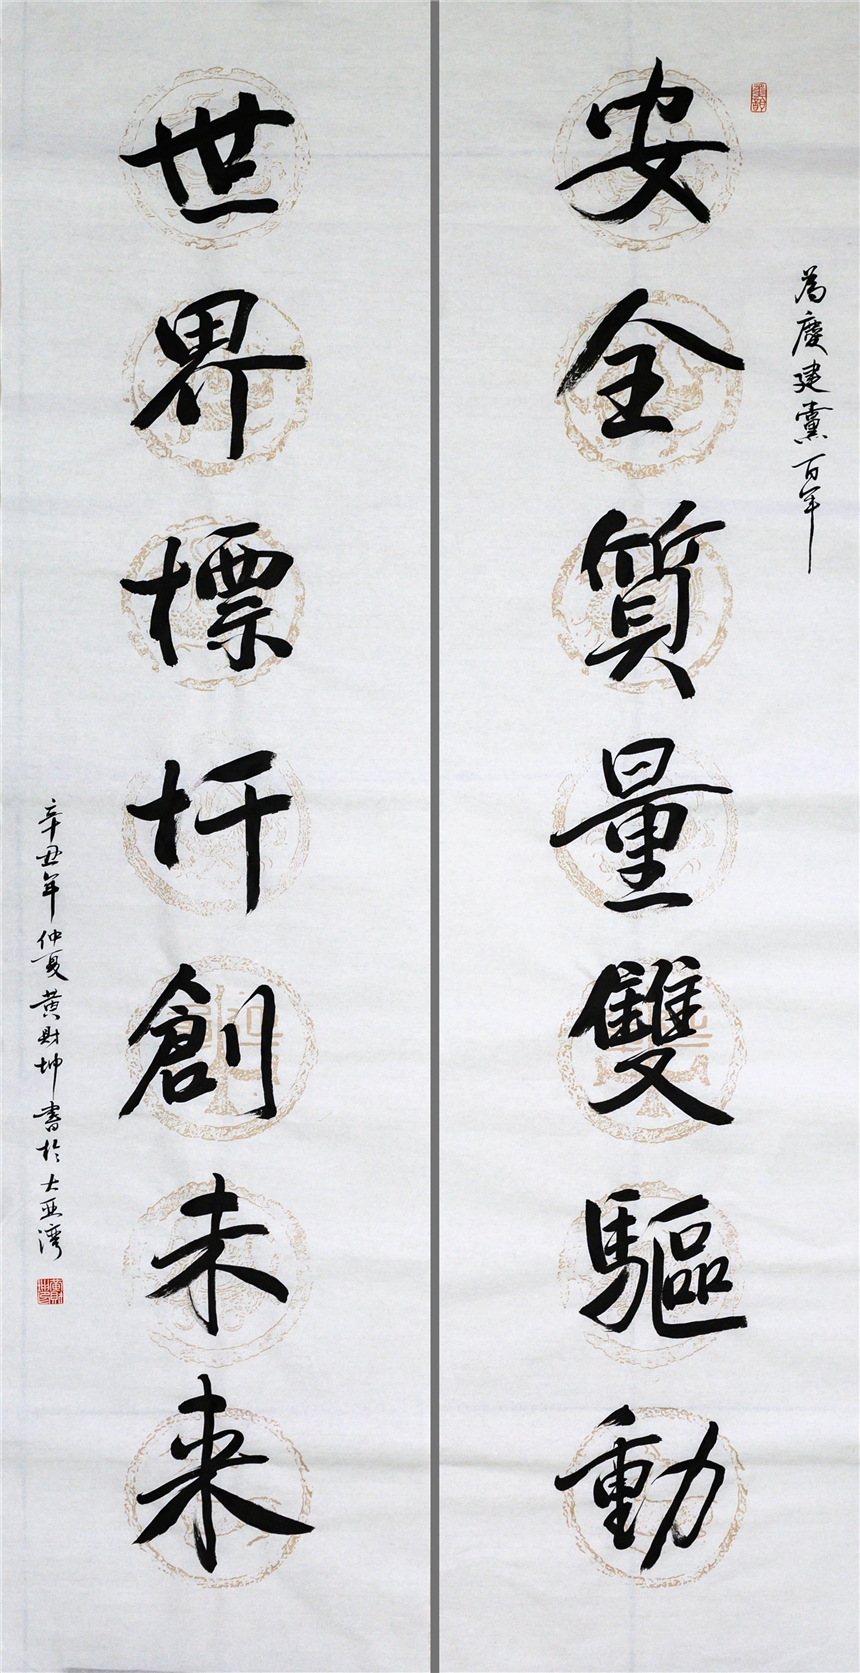 為慶建黨百年
安全質量雙驅動
世界標杆創未来
辛丑年仲夏黄財坤書於大亚湾